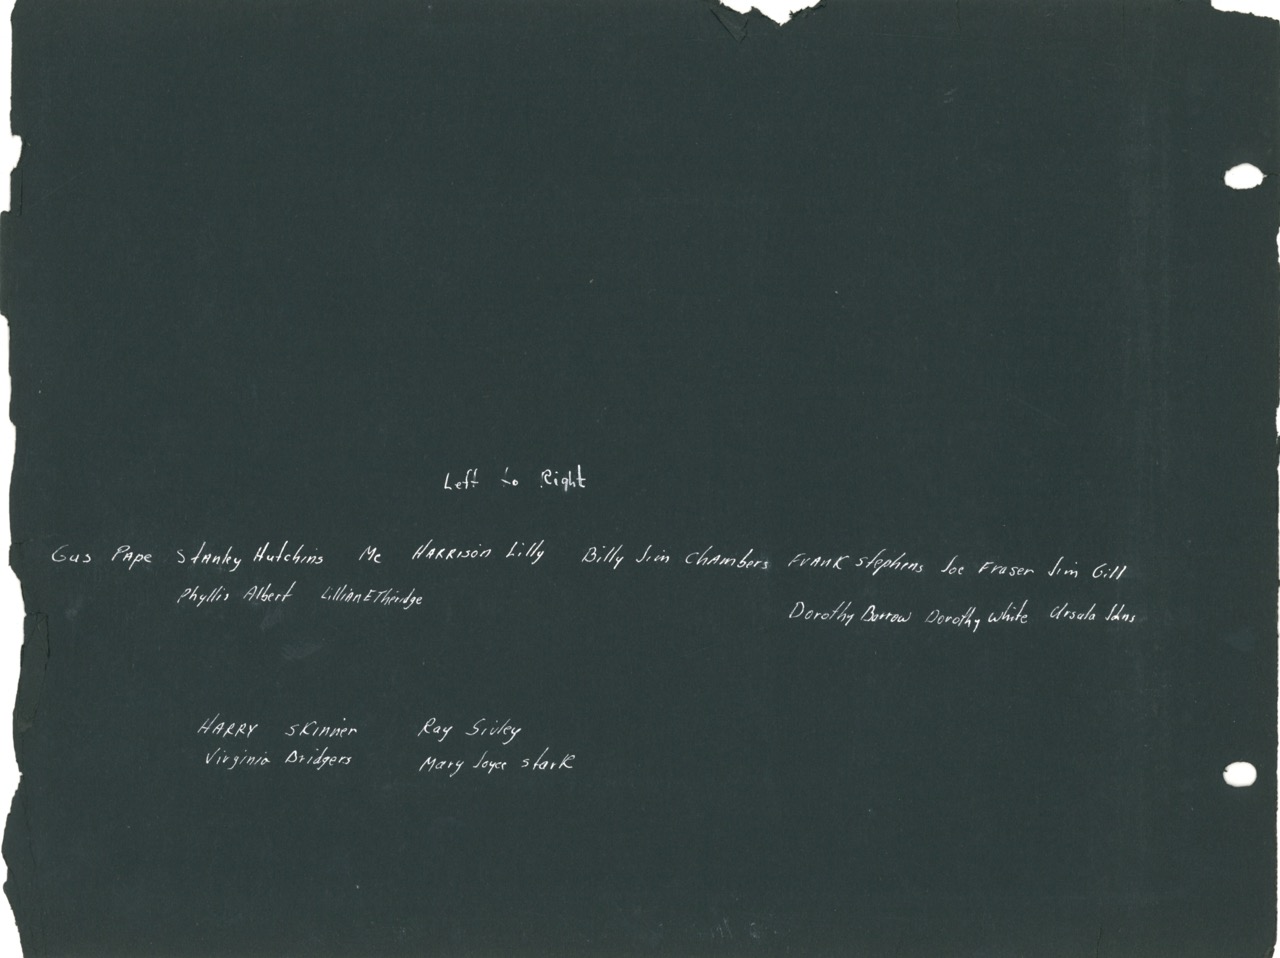 Left to Right
Gus Pape Stanley Hutchins Me Harrison Lilly Billy Jim Chambers Frank Stephens Joe Fraser Jim Gill
Phyllis Albert Lillian Etheridge Dorothy Barrow Dorothy White Ursula
Harry Skinner Ray Sivley
Virginia Bridgers Mary Joyce Stark